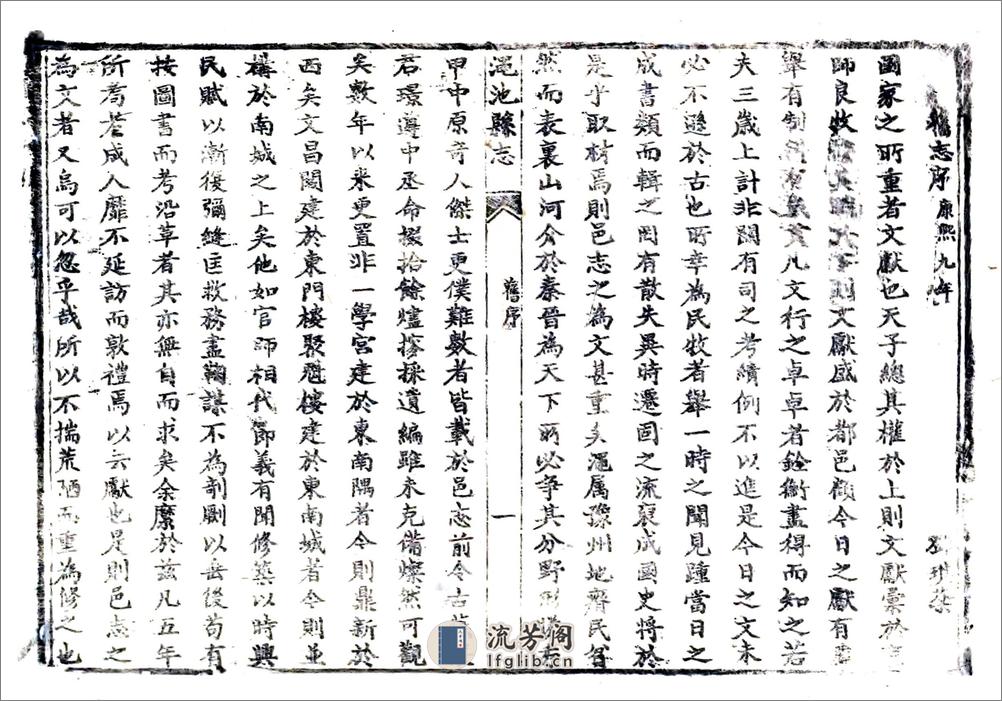 舊志序 康熙九年
國家之所重者文獻也天子總其權於上則文獻彙於
師良牧 則文獻盛於都邑顧今日之獻有
舉有制科 貢凡文行之卓卓者銓衡盡得而知之若
夫三歲上計非關有司之考績例不以進是今日之文未
必不遜於古也所幸為民牧者舉一時之聞見踵當日之
成書類而輯之罔有散失異時遷固之流裒成國史將於
是乎取材焉則邑志之為文甚重矣澠属豫州地瘠民貧
然而表裏山河介於秦晉為天下所必争其分野形
澠池縣志
舊序
一
甲中原奇人傑士更僕難數者皆載於邑志前令古
君璟遵中丞命掇拾餘燼搜採遺編雖未克備燦然可觀
矣數年以來更置非一學宮建於東南隅者今則鼎新於
西矣文昌閣建於東門樓聚魁樓建於東南城者今則並
構於南城之上矣他如官師相代節義有聞修築以時興
民賦以漸復彌縫匡救務盡鞠謀不為剞劂以岳後苟有
按圖書而考沿革者其亦無自而求矣余縻於兹凡五年
所耆荖成人靡不延訪而敦禮焉以云獻也是則邑志之
為文者又烏可以忽乎哉所以不揣荒陋而重為修之也
流芳阁
lfglib.cn